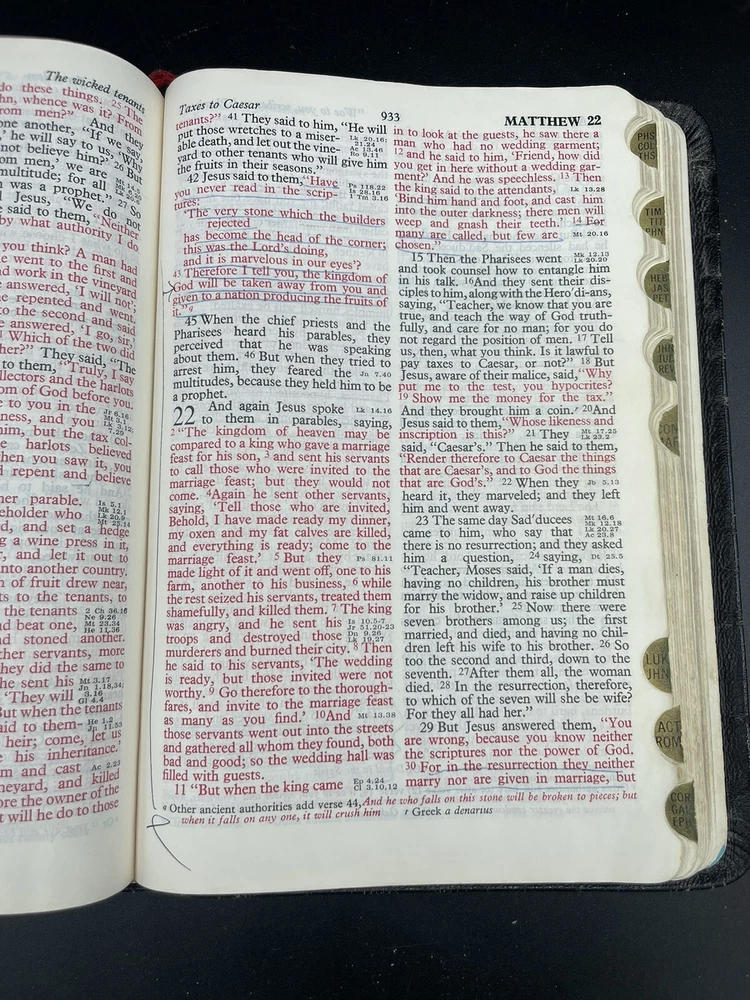 The wicked tenants
do these things. 25 The
hn, whence was it? From
rom men?" And they
one another, "If we say,
' he will say to us, 'Why
not believe him?' 26 But
om men,' we are
multitude; for all
n was a prophet." 27 So
d Jesus, "We do not
e said to them, "Neither
by what authority I do
you think? A man had
e went to the first and
nd work in the vineyard
e answered, 'I will not';
e repented and went.
to the second and said
he answered, 'I go, sir,'
Which of the two did
her?" They said, "The
to them, "Truly, I say
llectors and the harlots
om of God before you.
e to you in the
ness, and you
him, but the tax col-
e harlots believed
hen you saw it, you
d repent and believe
her parable.
eholder who
d, and set a hedge
g a wine press in it,
r, and let it out to
into another country.
n of fruit drew near,
ts to the tenants, to
the tenants
nd beat one,
nd stoned another.
ther servants, more
they did the same to
he sent his
'They will
But when the tenants
aid to them-
heir; come, let us
his inheritance.'
m and cast
neyard, and killed
ore the owner of the
t will he do to those
Jr 6.16
Mt 3.1
Lk 3.12;
7.29
Is 5.1
Mk 12.1
Lk 20.9
Mt 25.14
2 Ch 36.16
Ne 9.26
Mt 23.34
He 11.36
Mt 3.17
Jn 1.18,34;
3.16
Gl 4.4
He 1.2
Jn 11.53
Ac 2.23
Taxes to Caesar
933
MATTHEW 22
tenants?" 41 They said to him, "He will
put those wretches to a miser-
able death, and let out the vine-
yard to other tenants who will give him
the fruits in their seasons."
Lk 20.16;
21.24
Ac 13.46
Ro 9.11
42 Jesus said to them, "Have
you never read in the scrip-
tures:
Ps 118.22
Is 28.16
1 Tm 3.16
'The very stone which the builders
rejected
has become the head of the corner;
this was the Lord's doing,
and it is marvelous in our eyes'?
43 Therefore I tell you, the kingdom of
God will be taken away from you and
given to a nation producing the fruits of
it." q
45 When the chief priests and the
Pharisees heard his parables, they
perceived that he was speaking
about them. 46 But when they tried to
arrest him, they feared the Jn 7.40
multitudes, because they held him to be
a prophet.
22 And again Jesus spoke Lk 14.16
to them in parables, saying,
2 "The kingdom of heaven may be
compared to a king who gave a marriage
feast for his son, 3 and sent his servants
to call those who were invited to the
marriage feast; but they would not
come. 4 Again he sent other servants,
saying, 'Tell those who are invited,
Behold, I have made ready my dinner,
my oxen and my fat calves are killed,
and everything is ready; come to the
marriage feast.' 5 But they Ps 81.11
made light of it and went off, one to his
farm, another to his business, 6 while
the rest seized his servants, treated them
shamefully, and killed them. 7 The king
was angry, and he sent his
troops and destroyed those
murderers and burned their city. 8 Then
Is 10.5-7
Jr 51.20-23
Dn 9.26
Lk 19.27
he said to his servants, 'The wedding
is ready, but those invited were not
worthy. 9 Go therefore to the thorough-
fares, and invite to the marriage feast
as many as you find.' 10 And Mt 13.38
those servants went out into the streets
and gathered all whom they found, both
bad and good; so the wedding hall was
filled with guests.
11 "But when the king came Ep 4.24
Cl 3.10,12
in to look at the guests, he saw there a
man who had no wedding garment;
12 and he said to him, 'Friend, how did
you get in here without a wedding gar-
ment?' And he was speechless. 13 Then
the king said to the attendants, Lk 13.28
'Bind him hand and foot, and cast him
into the outer darkness; there men will
weep and gnash their teeth.' 14 For
many are called, but few are Mt 20.16
chosen."
15 Then the Pharisees went Mk 12.13
Lk 20.20
and took counsel how to entangle him
in his talk. 16 And they sent their dis-
ciples to him, along with the Hero'di-ans,
saying, "Teacher, we know that you are
true, and teach the way of God truth-
fully, and care for no man; for you do
not regard the position of men. 17 Tell
us, then, what you think. Is it lawful to
pay taxes to Caesar, or not?" 18 But
Jesus, aware of their malice, said, "Why
put me to the test, you hypocrites?
19 Show me the money for the tax."
And they brought him a coin. r 20 And
Jesus said to them, "Whose likeness and
inscription is this?" 21 They Mt 17.25
Lk 23.2
said, "Caesar's." Then he said to them,
"Render therefore to Caesar the things
that are Caesar's, and to God the things
that are God's." 22 When they Jb 5.13
heard it, they marveled; and they left
him and went away.
23 The same day Sad'ducees
came to him, who say that
there is no resurrection; and they asked
Mt 16.6
Mk 12.18
Lk 20.27
Ac 23.8
him a question, 24 saying, Dt 25.5
"Teacher, Moses said, 'If a man dies,
having no children, his brother must
marry the widow, and raise up children
for his brother.' 25 Now there were
seven brothers among us; the first
married, and died, and having no chil-
dren left his wife to his brother. 26 So
too the second and third, down to the
seventh. 27 After them all, the woman
died. 28 In the resurrection, therefore,
to which of the seven will she be wife?
For they all had her."
29 But Jesus answered them, "You
are wrong, because you know neither
the scriptures nor the power of God.
30 For in the resurrection they neither
marry nor are given in marriage, but
q Other ancient authorities add verse 44, And he who falls on this stone will be broken to pieces; but
when it falls on any one, it will crush him
r Greek a denarius
PHS
COL
THS
TIM
TIT
PHN
HEB
JAS
PET
JHN
JUD
REV
LUK
JHN
ACT
ROM
COR
GAL
EPH